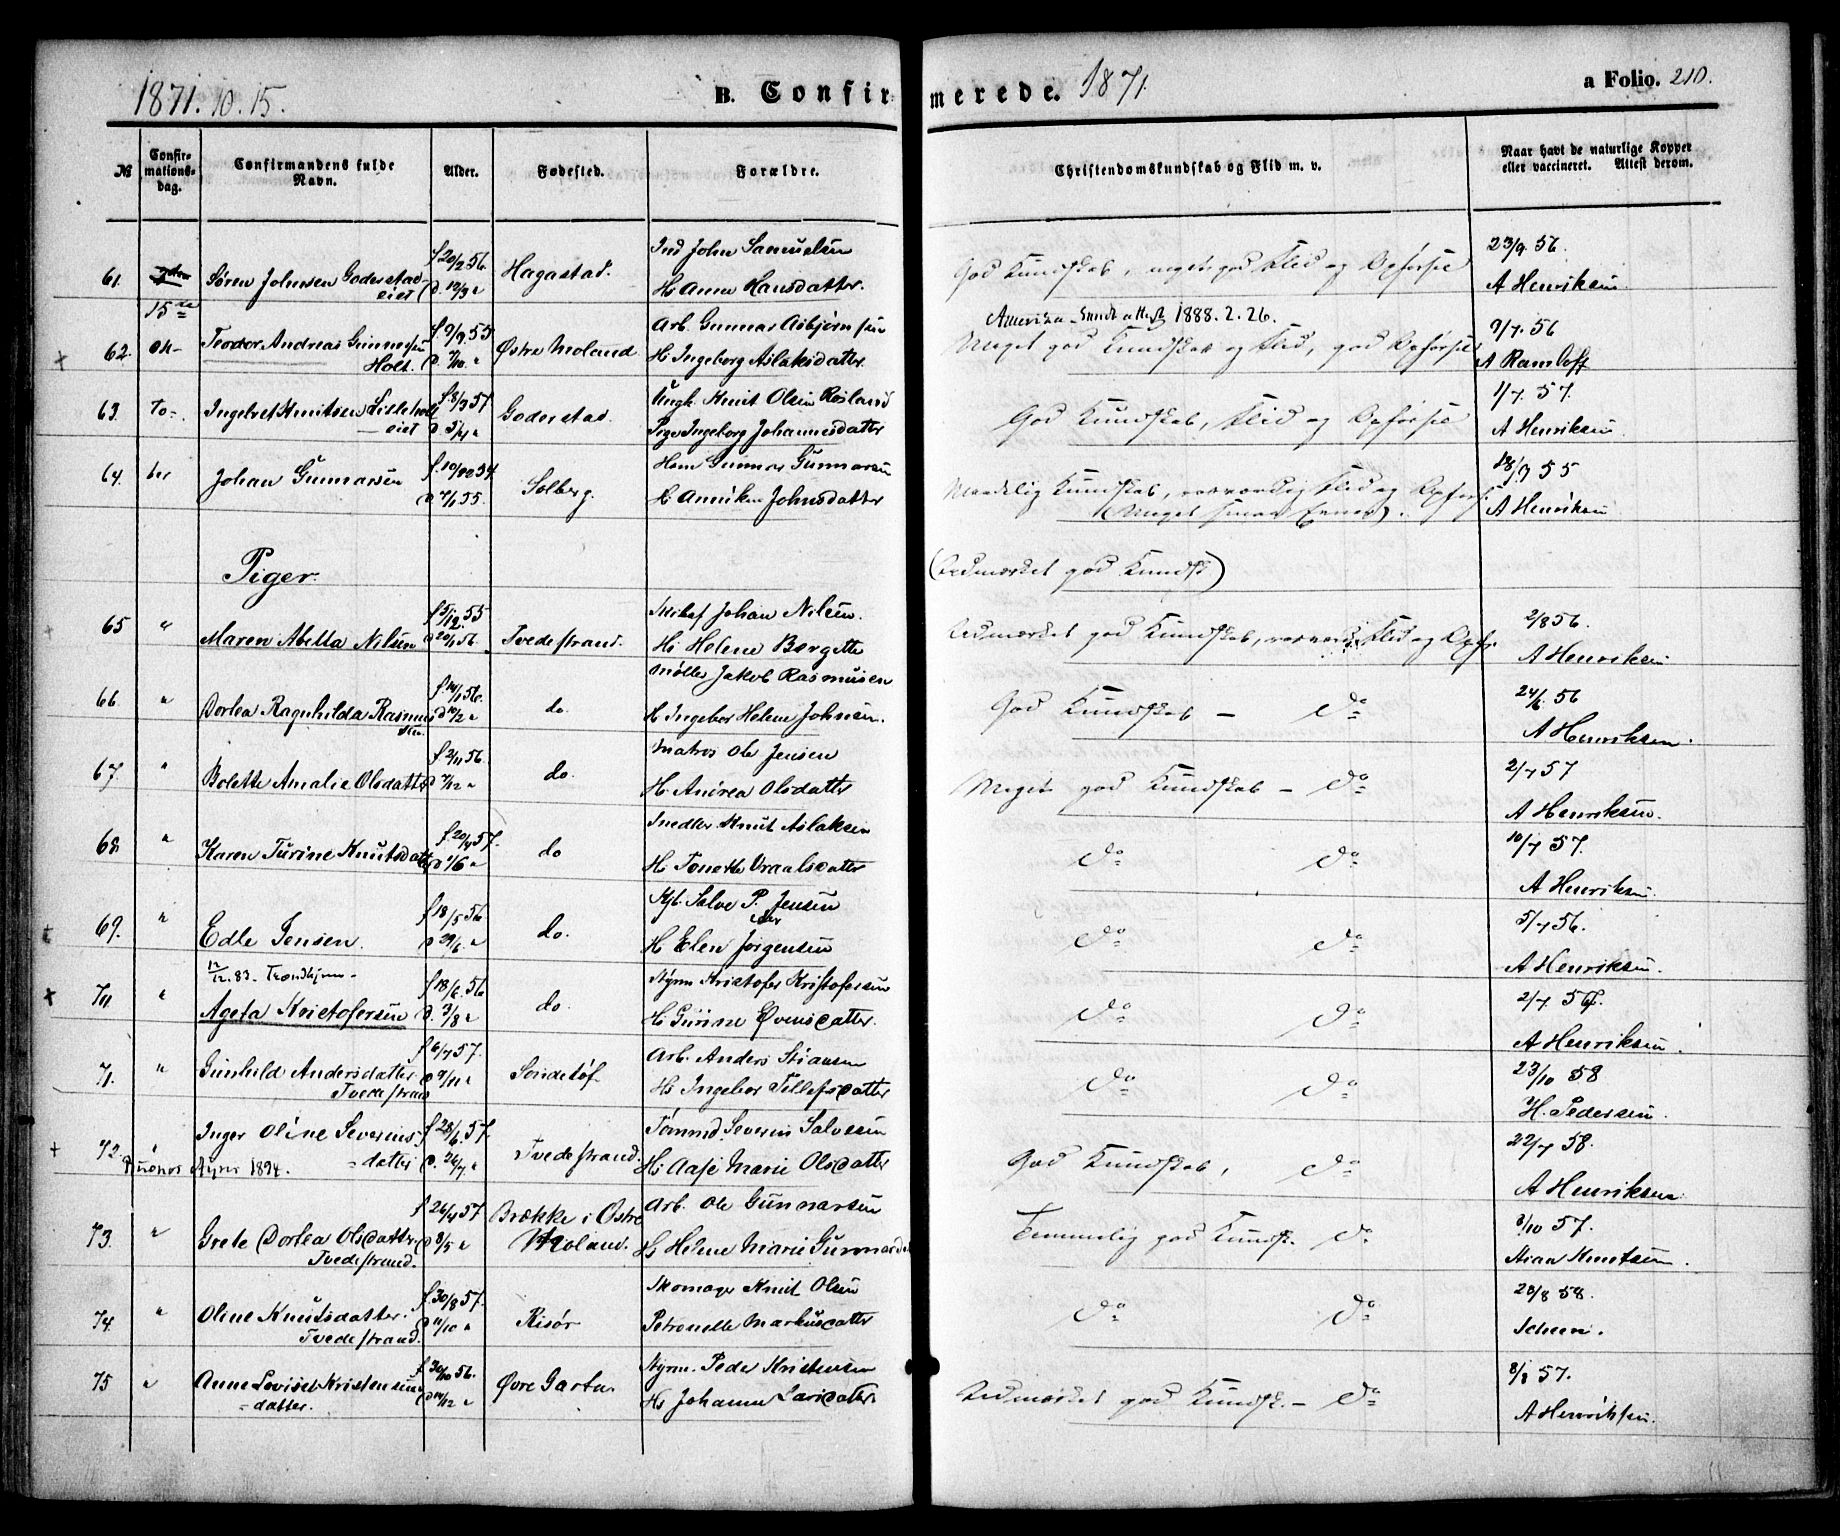 1871. 10. 15.
B. Confirmerede. 1871.
a Folio. 210.
№
Confirmationsdag.
Confirmandens fulde Navn.
Alder.
Fødested.
Forældre.
Christendomskundskab og Flid m. v.
Naar havt de naturlige Kopper eller vaccineret. Attest derom.
61.
15de
Søren Johnsen Goderstad
eiet
f. 20/2 56.
Hagastad.
Ind John Samuelsen
H. Anne Hansdatter.
God Kundskab, meget god Flid og Opførsel
23/9. 56.
A Henriksen.
Amerika - Sendt attest 1888. 2. 26.
62. Ok-
Teodor Andreas Gunnarsen
Holt.
f 9/9. 55
Østre Moland
Arb. Gunnar Asbjørnsen
H. Ingeborg Aslaksdatter.
Meget god Kundskab og Flid, god Opførsel
9/7. 56
A Ramloff
63. To-
Ingelret Knutsen Lilleholt
eiet
f. 8/3 57
D. 5/4 "
Goderstad.
Ungk. Knut Olsen Røsland
Pige Ingeborg Johannesdatter
God Kundskab, Flid og Opførsel
1/7. 57.
A Henriksen.
64. ber
Johan Gunnarsen
D 7/1 55.
Solberg.
Gunnar Gunnarsen
H. Anniken Johnsdatter
Maadelig Kundskab, Flid og Opførs.
(Meget smaa Evner).
A Henriksen
Piger.
(Udmærket god Kundsk)
65 "
Maren Abella Nilsen
f 5/12. 55
D 20/1 56.
Tvedestrand.
Johan Nilsen.
H. Helene Bergitte
Udmærket god Kundskab, Flid og Opfør.
2/8 56.
A Henriksen
66 "
Dorlea Ragnhilda Rasmus
sen.
f 14/1 56.
D 10/2 "
do.
Møller Jakob Rasmusen
H. Ingebor Helene Johnsen.
God Kundskab - do
24/6. 56
A Henriksen.
67. "
Bolette Amalie Olsdatter
f 2/11 56.
D 7/12 "
do.
Matros Ole Jensen
H. Andrea Olsdatter
Meget god Kundskab - do
2/7 57
A Henriksen.
68. "
Karen Turine Knutsdatter
f 20/4 57.
D 1/6 "
do
Snedker Knut Aslaksen
H. Tonette Vraalsdatter
do do
10/7 57.
A Henriksen.
69. "
Edle Jensen.
f 18/5 56
D 29/6. "
do.
Salve P. Jensen
H Elen Jørgensen
do do
5/7 56.
A Henriksen.
12/12. 83. Trondhjem -
70 "
Ageta Kristofersen
f 18/6. 56
D. 3/8 "
do.
Styrm Kristofer Kristofersen
H. Gurine Øvensdatter.
do do
A Henriksen.
71. "
Gunhild Andersdatter
Tvedestrand
f 6/7 57.
D 9/11 "
Sondeløf.
Arb. Anders Stiansen
H. Ingebor Tellefsdatter
do do
23/10 58
H. Pedersen.
72. "
Inger Oline Severins-
datter
Buenos Ayres 1894.
f 28/6. 57.
D. 26/7. "
Tvedestrand.
Tømmd Severin Salvesen
H. Aase Marie Olsdatter
God Kundskab, do
22/7 58.
A Henriksen
73. "
Grete Dorlea Olsdatter.
Tvedestrand.
f 26/4 57
D 8/5 "
Brække i Østre
Moland.
Arb. Ole Gunnarsen
H. Helene Marie Gunnarsd
Temmelig god Kundsk. do
3/10 57.
Stian Knutsen.
74. "
Oline Knutsdatter.
Tvedestrand.
f 30/8 57.
D 11/10 "
Risør
Skomager Knut Olsen
Petronelle Markusdatter
do do
28/8 58.
Scheen.
75 "
Anne Lovise Kristensen
= datter.
f 30/10 56.
D 14/12 "
Øvre Garta.
Styrm. Peder Kristensen
H. Johanne Larsdatter
Udmærket god Kundsk. - do
8/8 57.
A Henriksen.